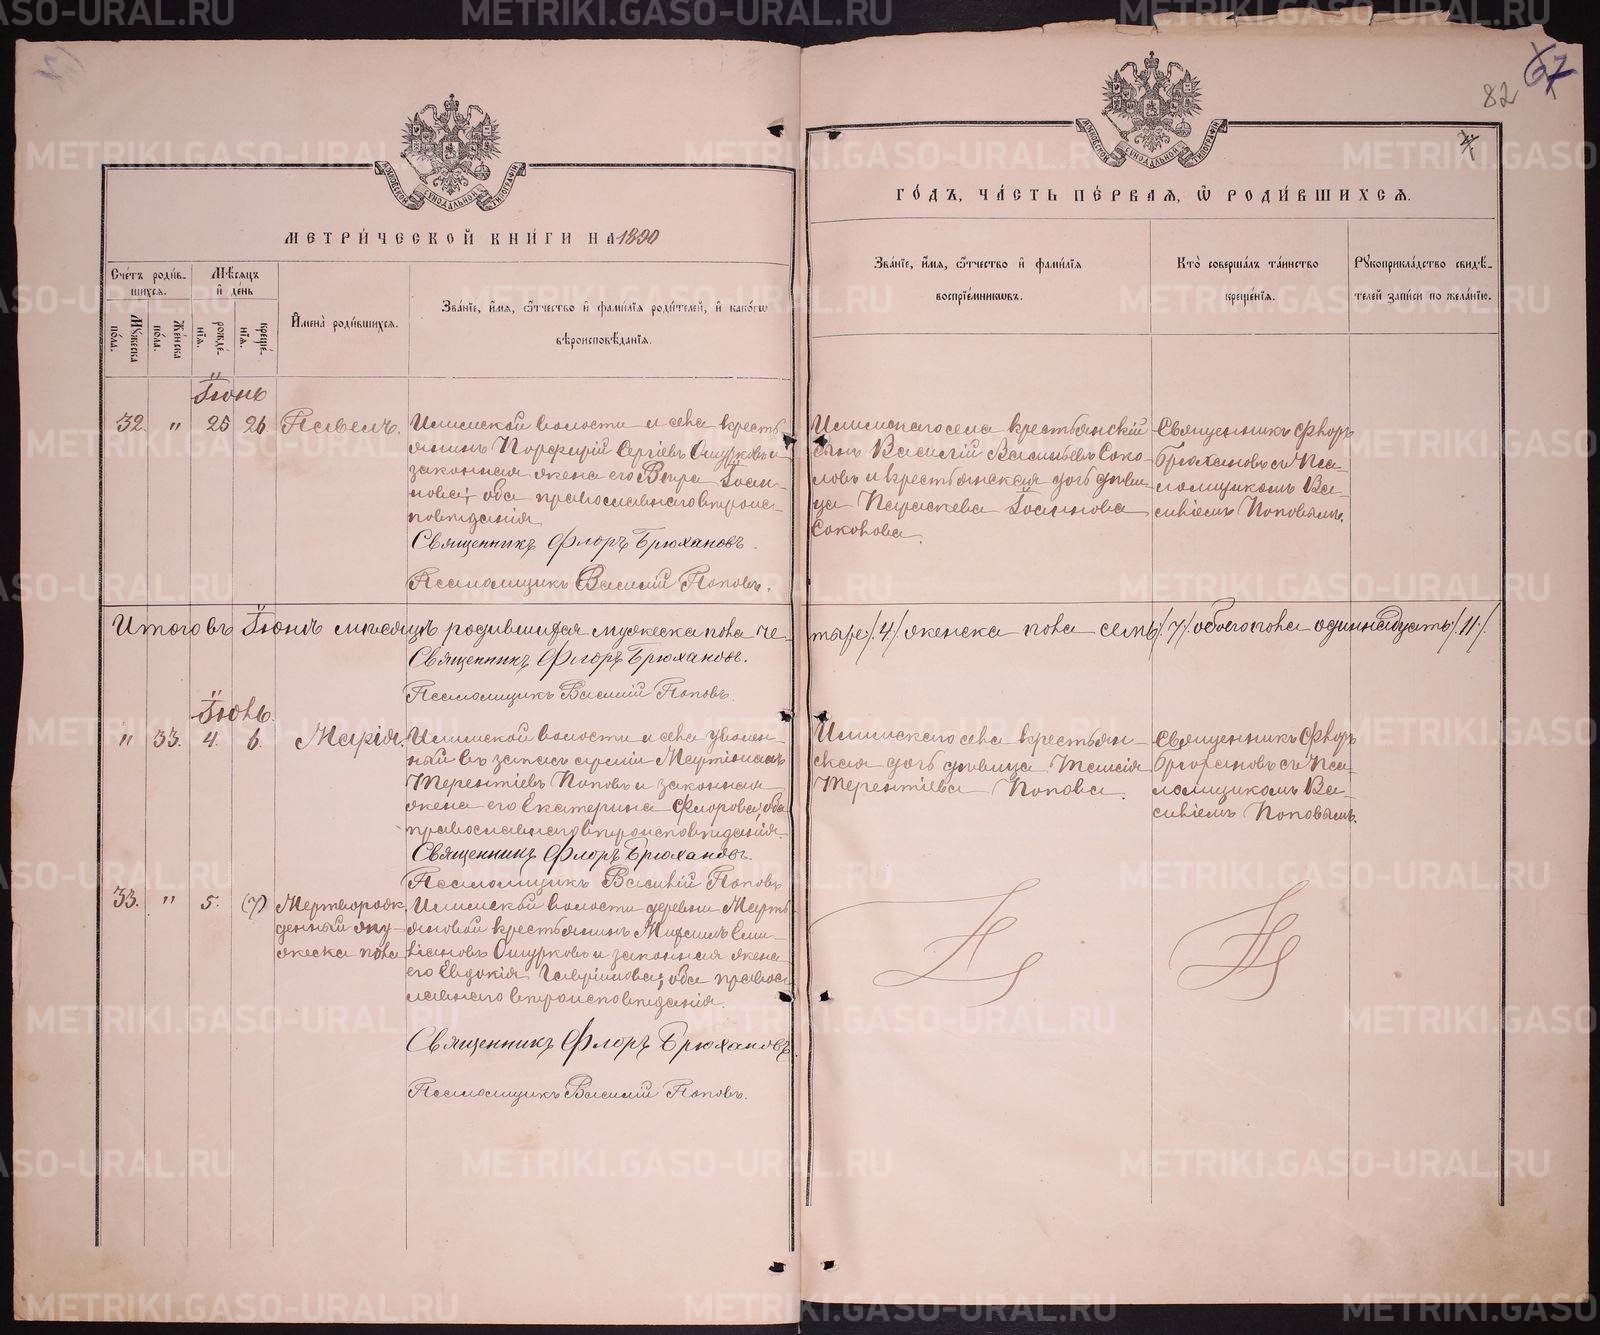 82
67
МОСКОВСКОЙ СѴНОДАЛЬНОЙ ТИПОГРАФІИ
МОСКОВСКОЙ СѴНОДАЛЬНОЙ ТИПОГРАФІИ
МЕТРИ́ЧЕСКОЙ КНИ́ГИ НА 1890
ГО́ДЪ, ЧА́СТЬ ПЕ́РВАЯ, Ѡ РОДИ́ВШИХСЯ.
Сче́тъ роди́в-
шихся.
Мꙋ́жеска по́ла.
Же́нска по́ла.
Мѣ́сяцъ
и҆ де́нь
рожде́-
нїя.
креще́-
нїя.
И҆мена̀ роди́вшихся.
Зва́нїе, и҆́мя, ѻ҆́тчество и҆ фами́лїя роди́телей, и҆ како́гѡ
вѣроисповѣ́данїя.
Зва́нїе, и҆́мя, ѻ҆́тчество и҆ фами́лїя
воспрїе́мникѡвъ.
Кто̀ соверша́лъ та́инство
креще́нїя.
Рꙋкоприкла́дство свидѣ́-
телей за́писи по жела́нїю.
Іюнь
32. " 25 26. Павелъ.
Илимской волости и села кресть-
янинъ Порфирій Сергіевъ Ошурковъ и
законная жена его Вѣра Іоан-
нова; оба православнаго вѣроис-
повѣданія
Священникъ Флоръ Брюхановъ.
Псаломщикъ Василій Поповъ.
Илимскаго села крестьянскій
сынъ Василій Васильевъ Соко-
ловъ и крестьянская дочь дѣви-
ца Параскева Іоаннова
Соколова.
Священникъ Флоръ
Брюхановъ съ Пса-
ломщикомъ Ва-
силіемъ Поповымъ.
Итого въ Іюнѣ мѣсяцѣ родившихся мужеска пола че-
тыре /4/ женска пола семь /7/ обоего пола одиннадцать /11/.
Священникъ Флоръ Брюхановъ.
Псаломщикъ Василій Поповъ.
Іюль.
" 33. 4. 6. Марія.
Илимской волости и села уволен-
ный въ запасъ арміи Мартиніанъ
Терентіевъ Поповъ и законная
жена его Екатерина Флорова; оба
православнаго вѣроисповѣданія.
Священникъ Флоръ Брюхановъ.
Псаломщикъ Василій Поповъ
Илимскаго села крестьян-
ская дочь дѣвица Таисія
Терентіева Попова.
Священникъ Флоръ
Брюхановъ съ Пса-
ломщикомъ Ва-
силіемъ Поповымъ.
33. " 5. (7)
Мертворож-
денный му-
жеска пола
Илимской волости деревни Марть-
яновой крестьянинъ Михаилъ Еми-
ліановъ Ошурковъ и законная жена
его Евдокія Гавріилова; оба правос-
лавнаго вѣроисповѣданія.
Священникъ Флоръ Брюхановъ
Псаломщикъ Василій Поповъ.
METRIKI.GASO-URAL.RU